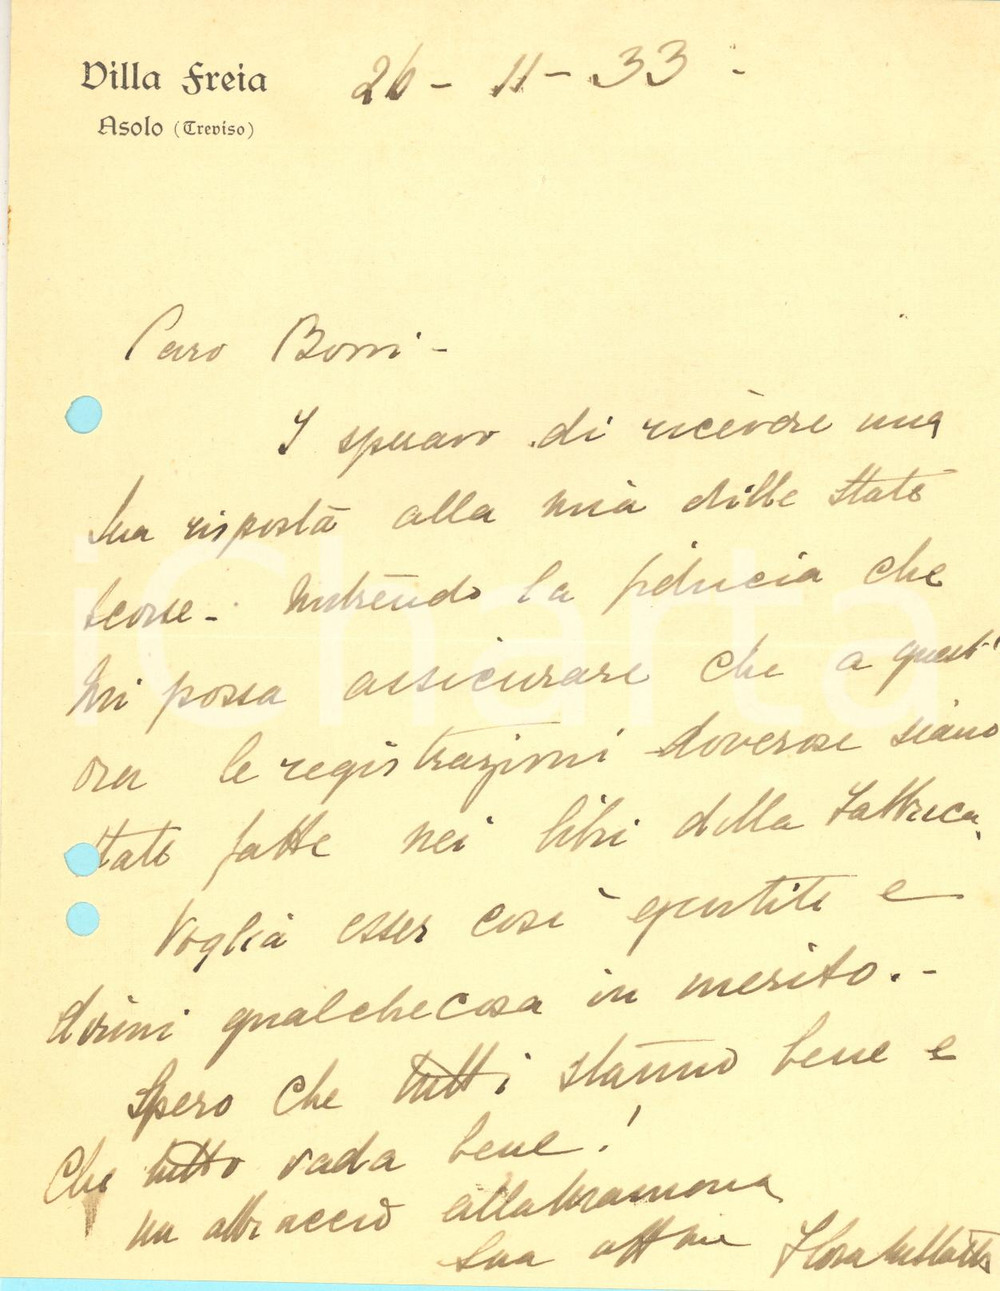 Villa Freia
Asolo (Treviso)
26 - 11 - 33 -
Caro Borri -
I speravo di ricevere una
sua risposta alla mia della State
scorse - Nutrendo la fiducia che
mi possa assicurare che a quest'
ora le registrazioni doverose siano
state fatte nei libri della Fabbrica,
Voglia esser così gentile e
dirmi qualchecosa in merito. -
Spero che tutti stanno bene e
Che tutto vada bene!
un abbraccio alla
Sua aff Flora
iCharta